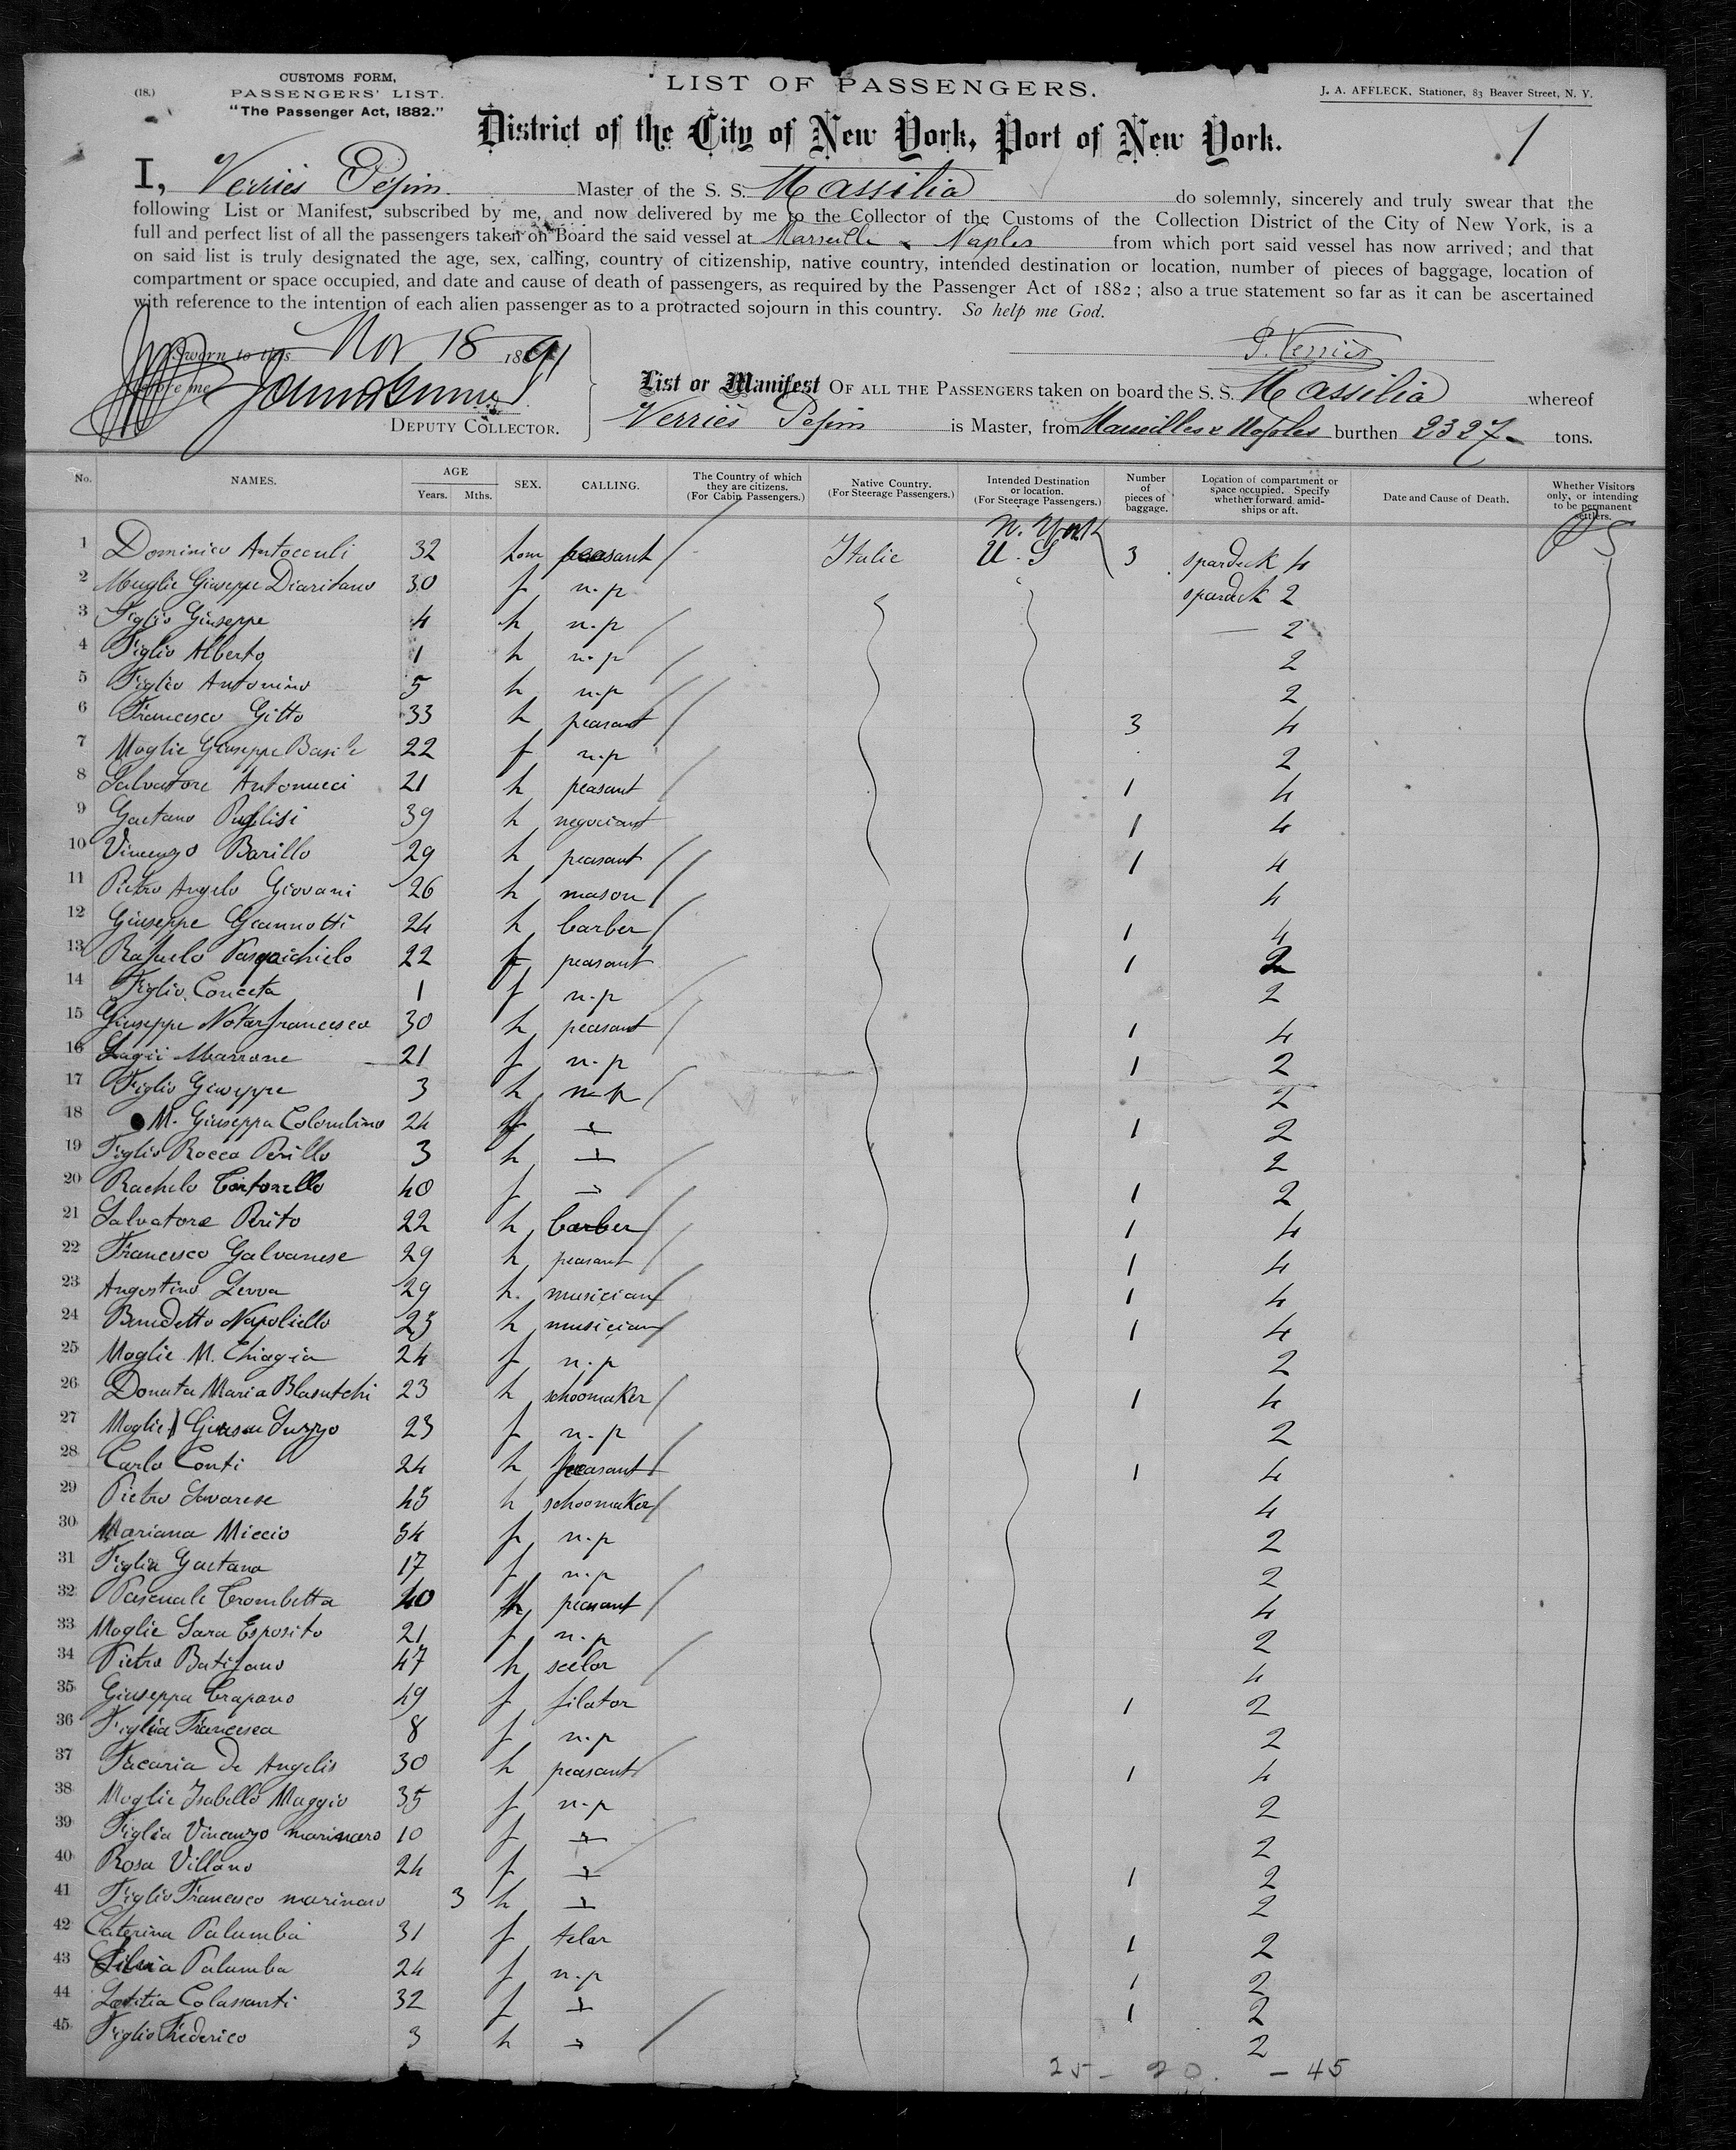 (18.)
CUSTOMS FORM,
PASSENGERS' LIST.
"The Passenger Act, 1882."
LIST OF PASSENGERS.
J. A. AFFLECK, Stationer, 83 Beaver Street, N. Y.
District of the City of New York, Port of New York.
1
I, Verries Pepin Master of the S. S. Massilia do solemnly, sincerely and truly swear that the
following List or Manifest, subscribed by me, and now delivered by me to the Collector of the Customs of the Collection District of the City of New York, is a
full and perfect list of all the passengers taken on Board the said vessel at Marseille & Naples from which port said vessel has now arrived; and that
on said list is truly designated the age, sex, calling, country of citizenship, native country, intended destination or location, number of pieces of baggage, location of
compartment or space occupied, and date and cause of death of passengers, as required by the Passenger Act of 1882; also a true statement so far as it can be ascertained
with reference to the intention of each alien passenger as to a protracted sojourn in this country. So help me God.
Sworn to this Nov 18 1891
P. Verries
before me
DEPUTY COLLECTOR.
List or Manifest OF ALL THE PASSENGERS taken on board the S. S. Massilia whereof
Verries Pepin is Master, from Marseilles & Naples burthen 2327 tons.
No. NAMES. AGE Years. Mths. SEX. CALLING. The Country of which they are citizens. (For Cabin Passengers.) Native Country. (For Steerage Passengers.) Intended Destination or location. (For Steerage Passengers.) Number of pieces of baggage. Location of compartment or space occupied. Specify whether forward, amidships or aft. Date and Cause of Death. Whether Visitors only, or intending to be permanent settlers.
N. York
1 Dominico Antocculi 32 hom peasant Italie U. S 3 spardeck 4 PS
2 Muglie Giuseppe Diaritano 30 f n.p spardeck 2
3 Figlio Giuseppe 4 h n.p 2
4 Figlio Alberto 1 h n.p 2
5 Figlio Antonino 5 h n.p 2
6 Francesco Gitto 33 h peasant 3 4
7 Moglie Giuseppe Basile 22 f n.p 2
8 Salvatore Antonucci 21 h peasant 1 4
9 Gaetano Puglisi 39 h negociant 1 4
10 Vincenzo Barillo 29 h peasant 1 4
11 Pietro Angelo Giovani 26 h mason 4
12 Giuseppe Giannotti 24 h barber 1 4
13 Rafuelo Pasquichielo 22 f peasant 1 2
14 Figlio Conceta 1 f n.p 2
15 Giuseppe Notarfrancesco 30 h peasant 1 4
16 Marrone 21 f n.p 1 2
17 Figlio Giuseppe 3 h n.p 2
18 M. Giuseppa Colombino 24 f 1 2
19 Figlio Rocco Perillo 3 h 2
20 Rachelo Tortorello 40 f 1 2
21 Salvatore Perito 22 h barber 1 4
22 Francesco Galvanese 29 h peasant 1 4
23 Angostino Levva 29 h. musician 1 4
24 Benedetto Napoliello 25 h musician 1 4
25 Moglie M. Chiagia 24 f n.p 2
26 Donata Maria Blasutchi 23 h schoomaker 1 4
27 Moglie 23 f n.p 2
28 Carlo Conti 24 h peasant 1 4
29 Pietro Savarese 45 h schoomaker 4
30 Mariana Miccio 54 f n.p 2
31 Figlia Gaetana 17 f n.p 2
32 Pasquale Trombetta 40 h peasant 4
33 Moglie Sara Esposito 21 f n.p 2
34 Pietro Batifano 47 h seelor 4
35 Giuseppa Trapano 49 f filator 1 2
36 Figlia Francesca 8 f n.p 2
37 Facaria De Angelis 30 h peasant 1 4
38 Moglie Isabello Maggio 35 f n.p 2
39 Figlia Vincenzo marinaro 10 f 2
40 Rosa Villano 24 f 1 2
41 Figlio Francesco marinaro 3 h 2
42 Caterina Palumba 31 f telar 1 2
43 Silvia Palumba 24 f n.p 1 2
44 Letitia Colassanti 32 f 1 2
45 Figlio Frederico 3 h 2
25 - 20. - 45